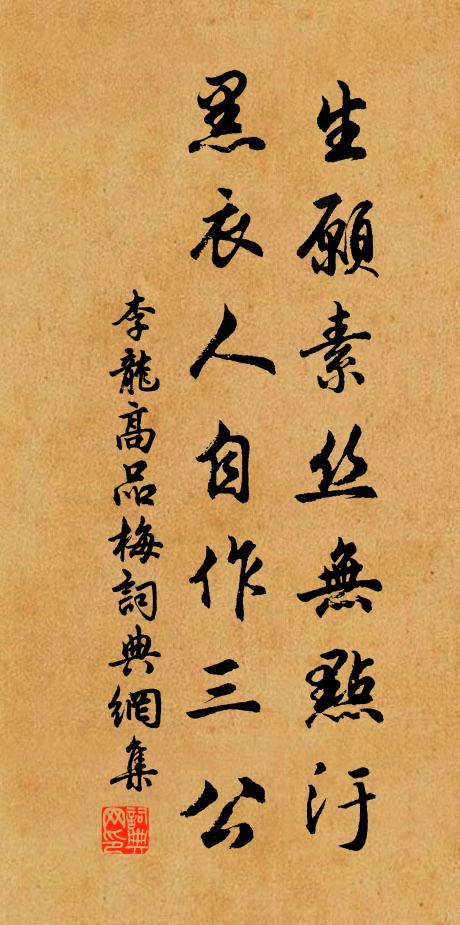 生願素丝無點汙
黑衣人自作三公
李龍高品梅詞典網集
詞典网印